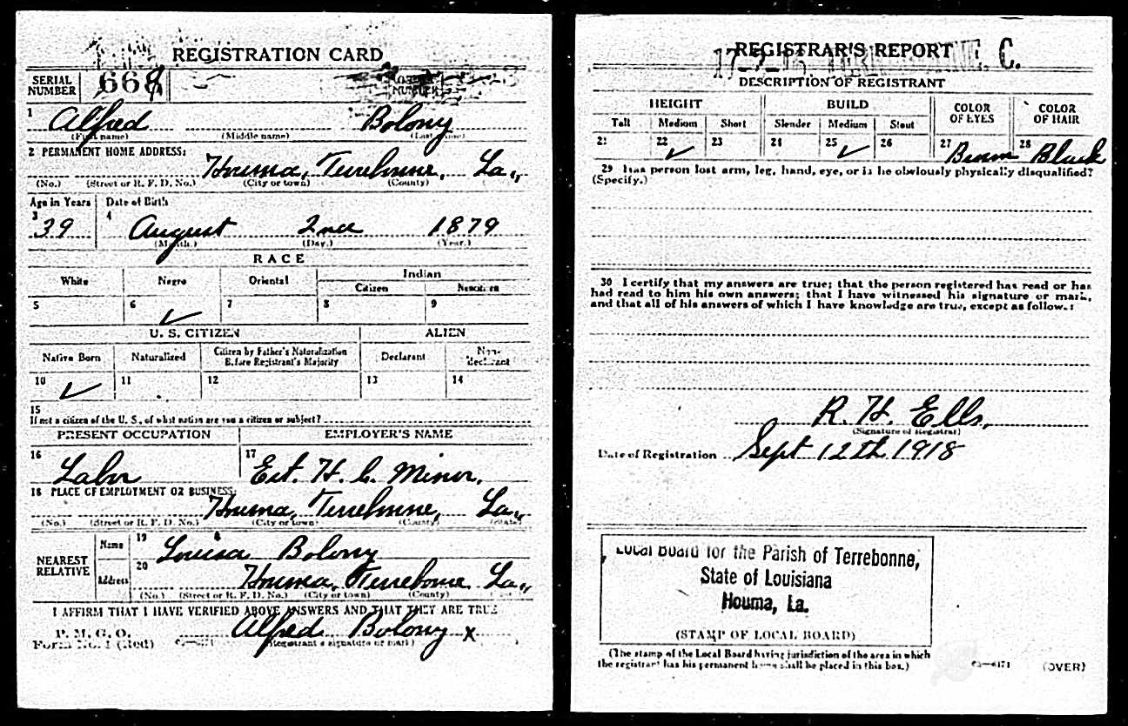 REGISTRATION CARD
SERIAL NUMBER 668
1 Alfred Bolony
(First name) (Middle name) (Last name)
2 PERMANENT HOME ADDRESS:
Houma, Terrebonne, La.,
(No.) (Street or R. F. D. No.) (City or town) (County)
Age in Years Date of Birth
3 39 4 August 2nd 1879
(Month.) (Day.) (Year.)
RACE
White Negro Oriental Indian
Citizen Noncitizen
5 6 ✓ 7 8 9
U. S. CITIZEN ALIEN
Native Born Naturalized Citizen by Father's Naturalization Before Registrant's Majority Declarant Non-declarant
10 ✓ 11 12 13 14
15
If not a citizen of the U. S., of what nation are you a citizen or subject?
PRESENT OCCUPATION EMPLOYER'S NAME
16 Labor 17 Est. H. C. Minor.
18 PLACE OF EMPLOYMENT OR BUSINESS:
Houma, Terrebonne, La.,
(No.) (Street or R. F. D. No.) (City or town) (County) (State)
NEAREST RELATIVE Name 19 Louisa Bolony
Address 20 Houma, Terrebonne La.,
(No.) (Street or R. F. D. No.) (City or town) (County)
I AFFIRM THAT I HAVE VERIFIED ABOVE ANSWERS AND THAT THEY ARE TRUE
P. M. G. O.
Form No. 1 (Red) Alfred Bolony x
(Registrant's signature or mark)
REGISTRAR'S REPORT
C.
DESCRIPTION OF REGISTRANT
HEIGHT BUILD COLOR OF EYES COLOR OF HAIR
Tall Medium Short Slender Medium Stout
21 22 ✓ 23 24 25 ✓ 26 27 Brown 28 Black
29 Has person lost arm, leg, hand, eye, or is he obviously physically disqualified?
(Specify.)
30 I certify that my answers are true; that the person registered has read or has
had read to him his own answers; that I have witnessed his signature or mark,
and that all of his answers of which I have knowledge are true, except as follows:
R. H. Ells,
(Signature of Registrar)
Date of Registration Sept 12th 1918
Local Board for the Parish of Terrebonne,
State of Louisiana
Houma, La.
(STAMP OF LOCAL BOARD)
(The stamp of the Local Board having jurisdiction of the area in which
the registrant has his permanent home shall be placed in this box.)
(OVER)